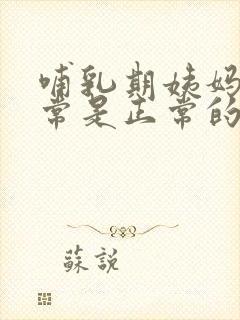 哺乳期姨妈
常是正常的
蘇説